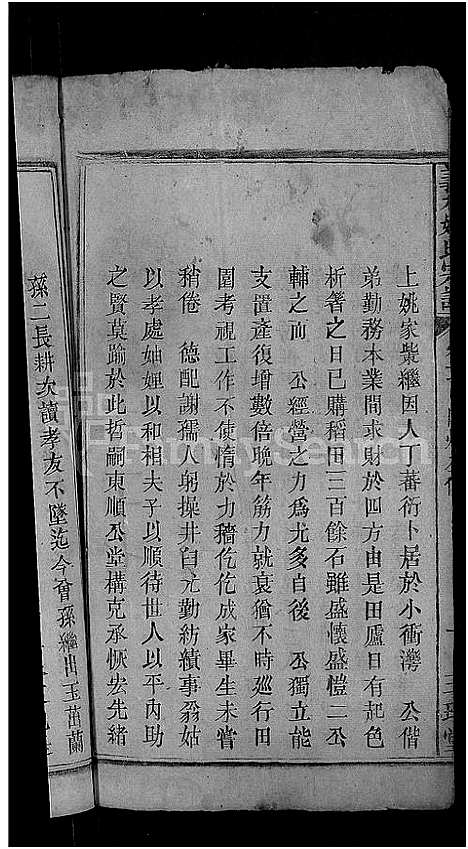 上姚家業繼因人丁蕃衍卜居於小衝灣　公偕
弟勤務本業間求財於四方由是田廬日有起色
析箸之日已購稻田三百餘石雖盛懷盛愷二公
輔之而　公經營之力為尤多自後　公獨立能
支置產復增數倍晚年筋力就衰猶不時巡行田
園考視工作不使惰於力穡仡仡成家畢生未嘗
稍倦　德配謝孺人躬操井臼尤勤紡績事翁姑
以孝處妯娌以和相夫子以順待世人以平內助
之賢莫踰於此哲嗣東順公堂構克承恢宏先緒
孫二長耕次讀孝友不墜迄今曾孫繼出玉茁蘭
FamilySearch